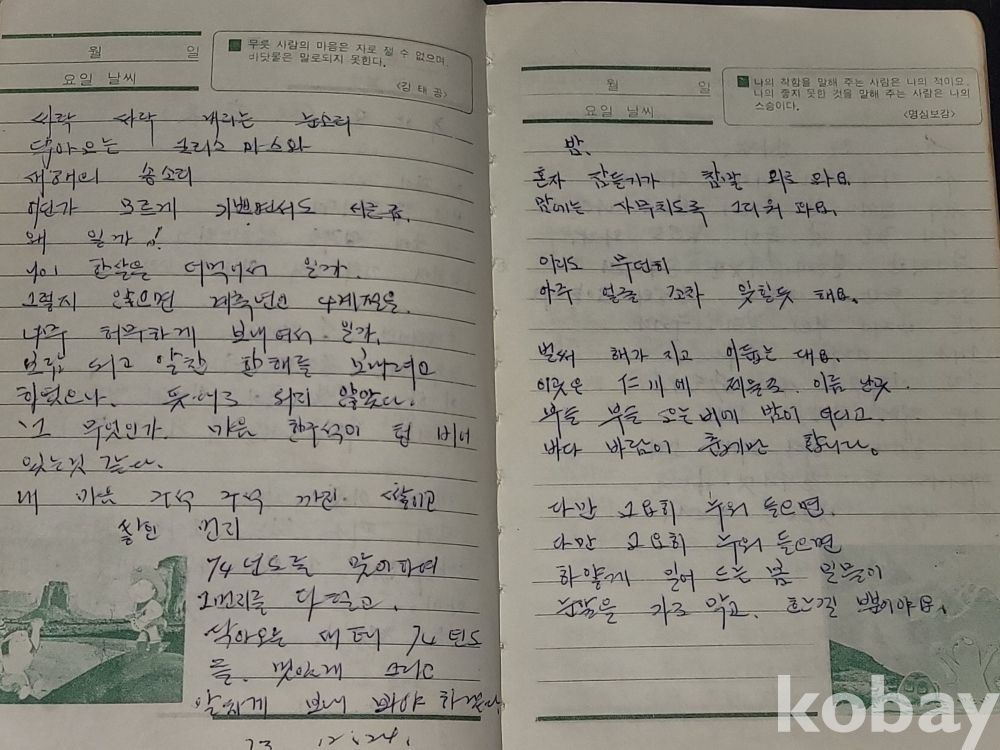 월 일
요일 날씨
무릇 사람의 마음은 자로 잴 수 없으며,
바닷물은 말로되지 못한다.
〈강 태 공〉
싸락 싸락 내리는 눈소리
크리스마스와
새해의 종소리
어딘가 모르게 기쁘면서도 서글픔.
왜 일까!
나이 한살을 더먹어서 일까.
그렇지 않으면 계축년의 4계절을
너무 허무하게 보내어서 일까.
보람 되고 알찬 한해를 보내려고
하였으나. 뜻대로 되지 않았다.
그 무엇인가. 마음 한구석이 텅 비어
있는것 같다.
내 마음 구석 구석 까진 쌓이고
쌓인 먼지
74년도를 맞이하여
그먼지를 다 털고.
74년도
를. 멋있게
알차게 보내 봐야 하겠다
73. 12. 24.
월 일
요일 날씨
나의 착함을 말해 주는 사람은 나의 적이요,
나의 좋지 못한 것을 말해 주는 사람은 나의
스승이다.
〈명심보감〉
밤.
혼자 잠들기가 참말 외로 와요.
맘에는 사무치도록 그리워 와요.
이리도 무던히
아주 얼굴 조차 잊힐듯 해요.
벌써 해가 지고 어둡는 대요.
이곳은 仁川에 제물포 이름 난곳.
부슬 부슬 오는비에 밤이 더디고.
바다 바람이 춥기만 합니다.
다만 고요히 누워 들으면.
다만 고요히 누워 들으면
하얗게 밀어 드는 봄 밀물이
눈앞을 가로 막고. 흐느낄 뿐이야요.
kobay